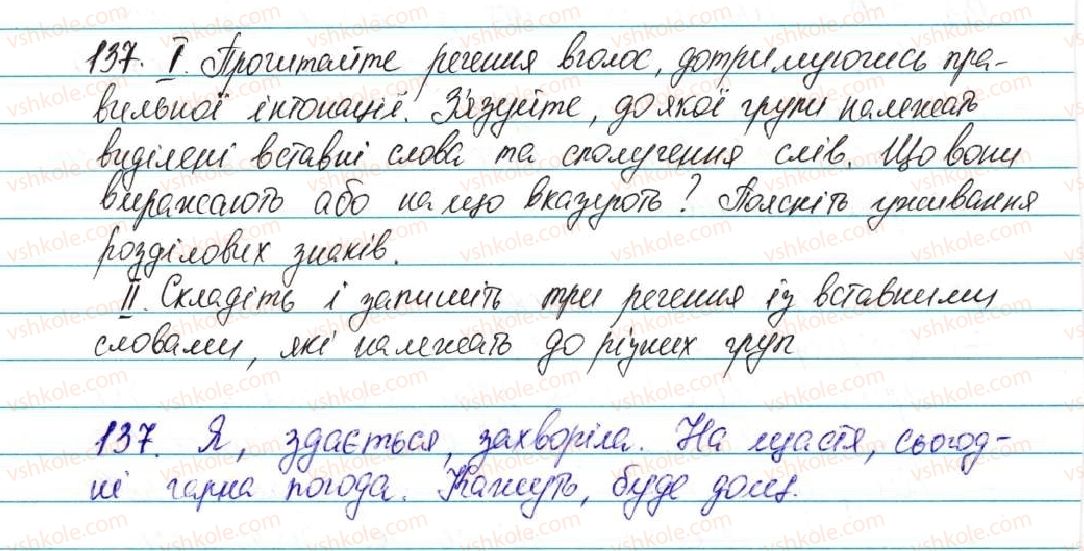 137. I. Прочитайте речення вголос, дотримуючись пра-
вильної інтонації. З'ясуйте, до якої групи належать
виділені вставні слова та сполучення слів. Що вони
виражають або на що вказують? Поясніть уживання
розділових знаків.
II. Складіть і запишіть три речення із вставними
словами, які належать до різних груп
137. Я, здається, захворіла. На щастя, сьогод-
ні гарна погода. Кажуть, буде дощ.